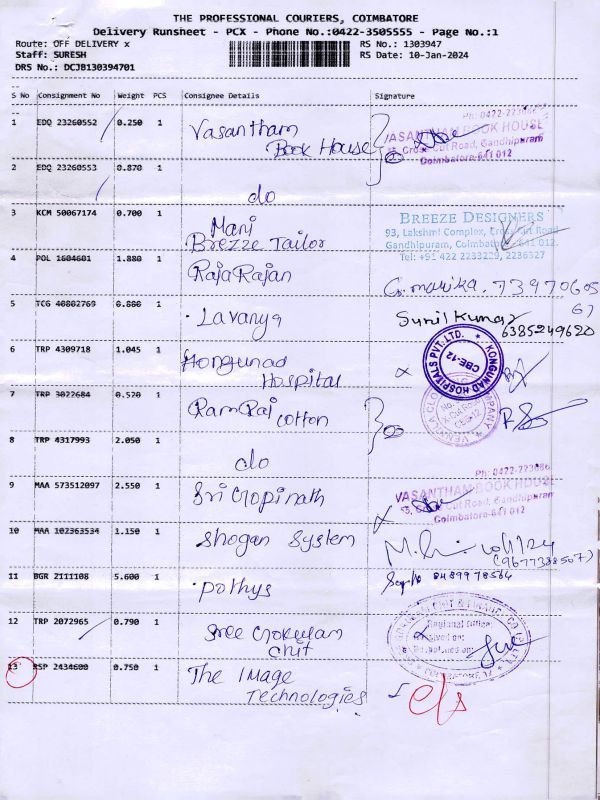 THE PROFESSIONAL COURIERS, COIMBATORE
Delivery Runsheet - PCX - Phone No.:0422-3505555 - Page No.:1
Route: OFF DELIVERY x RS No.: 1303947
Staff: SURESH RS Date: 10-Jan-2024
DRS No.: DCJB130394701
S No Consignment No Weight PCS Consignee Details Signature
1 EDQ 23260552 0.250 1 Vasantham Book House
VASANTHAM BOOK HOUSE
Cross Cut Road, Gandhipuram
Coimbatore-641 012
2 EDQ 23260553 0.870 1 do
3 KCM 50067174 0.700 1 Mani
Brezze Tailor
BREEZE DESIGNERS
93, Lakshmi Complex, Cross Cut Road
Gandhipuram, Coimbatore - 641 012.
Tel: +91 422 2233229, 2236327
4 POL 1604601 1.880 1 RajaRajan
5 TCG 40802769 0.880 1 Lavanya Sunil Kumar
6385249620
6 TRP 4309718 1.045 1 Hongunad
Hospital
KONGUNAD HOSPITALS PVT. LTD.
CBE-12
7 TRP 3022684 0.520 1 RamRaj cotton
8 TRP 4317993 2.050 1 do
9 MAA 573512097 2.550 1 Sri Gopinath
VASANTHAM BOOK HOUSE
Cross Cut Road, Gandhipuram
Coimbatore-641 012
10 MAA 102363534 1.150 1 Shogan System
11 BGR 2111108 5.600 1 Pothys
12 TRP 2072965 0.790 1 Sree Gokulam
Chit
Regional Office
13 RSP 2434600 0.750 1 The Image
Technologies